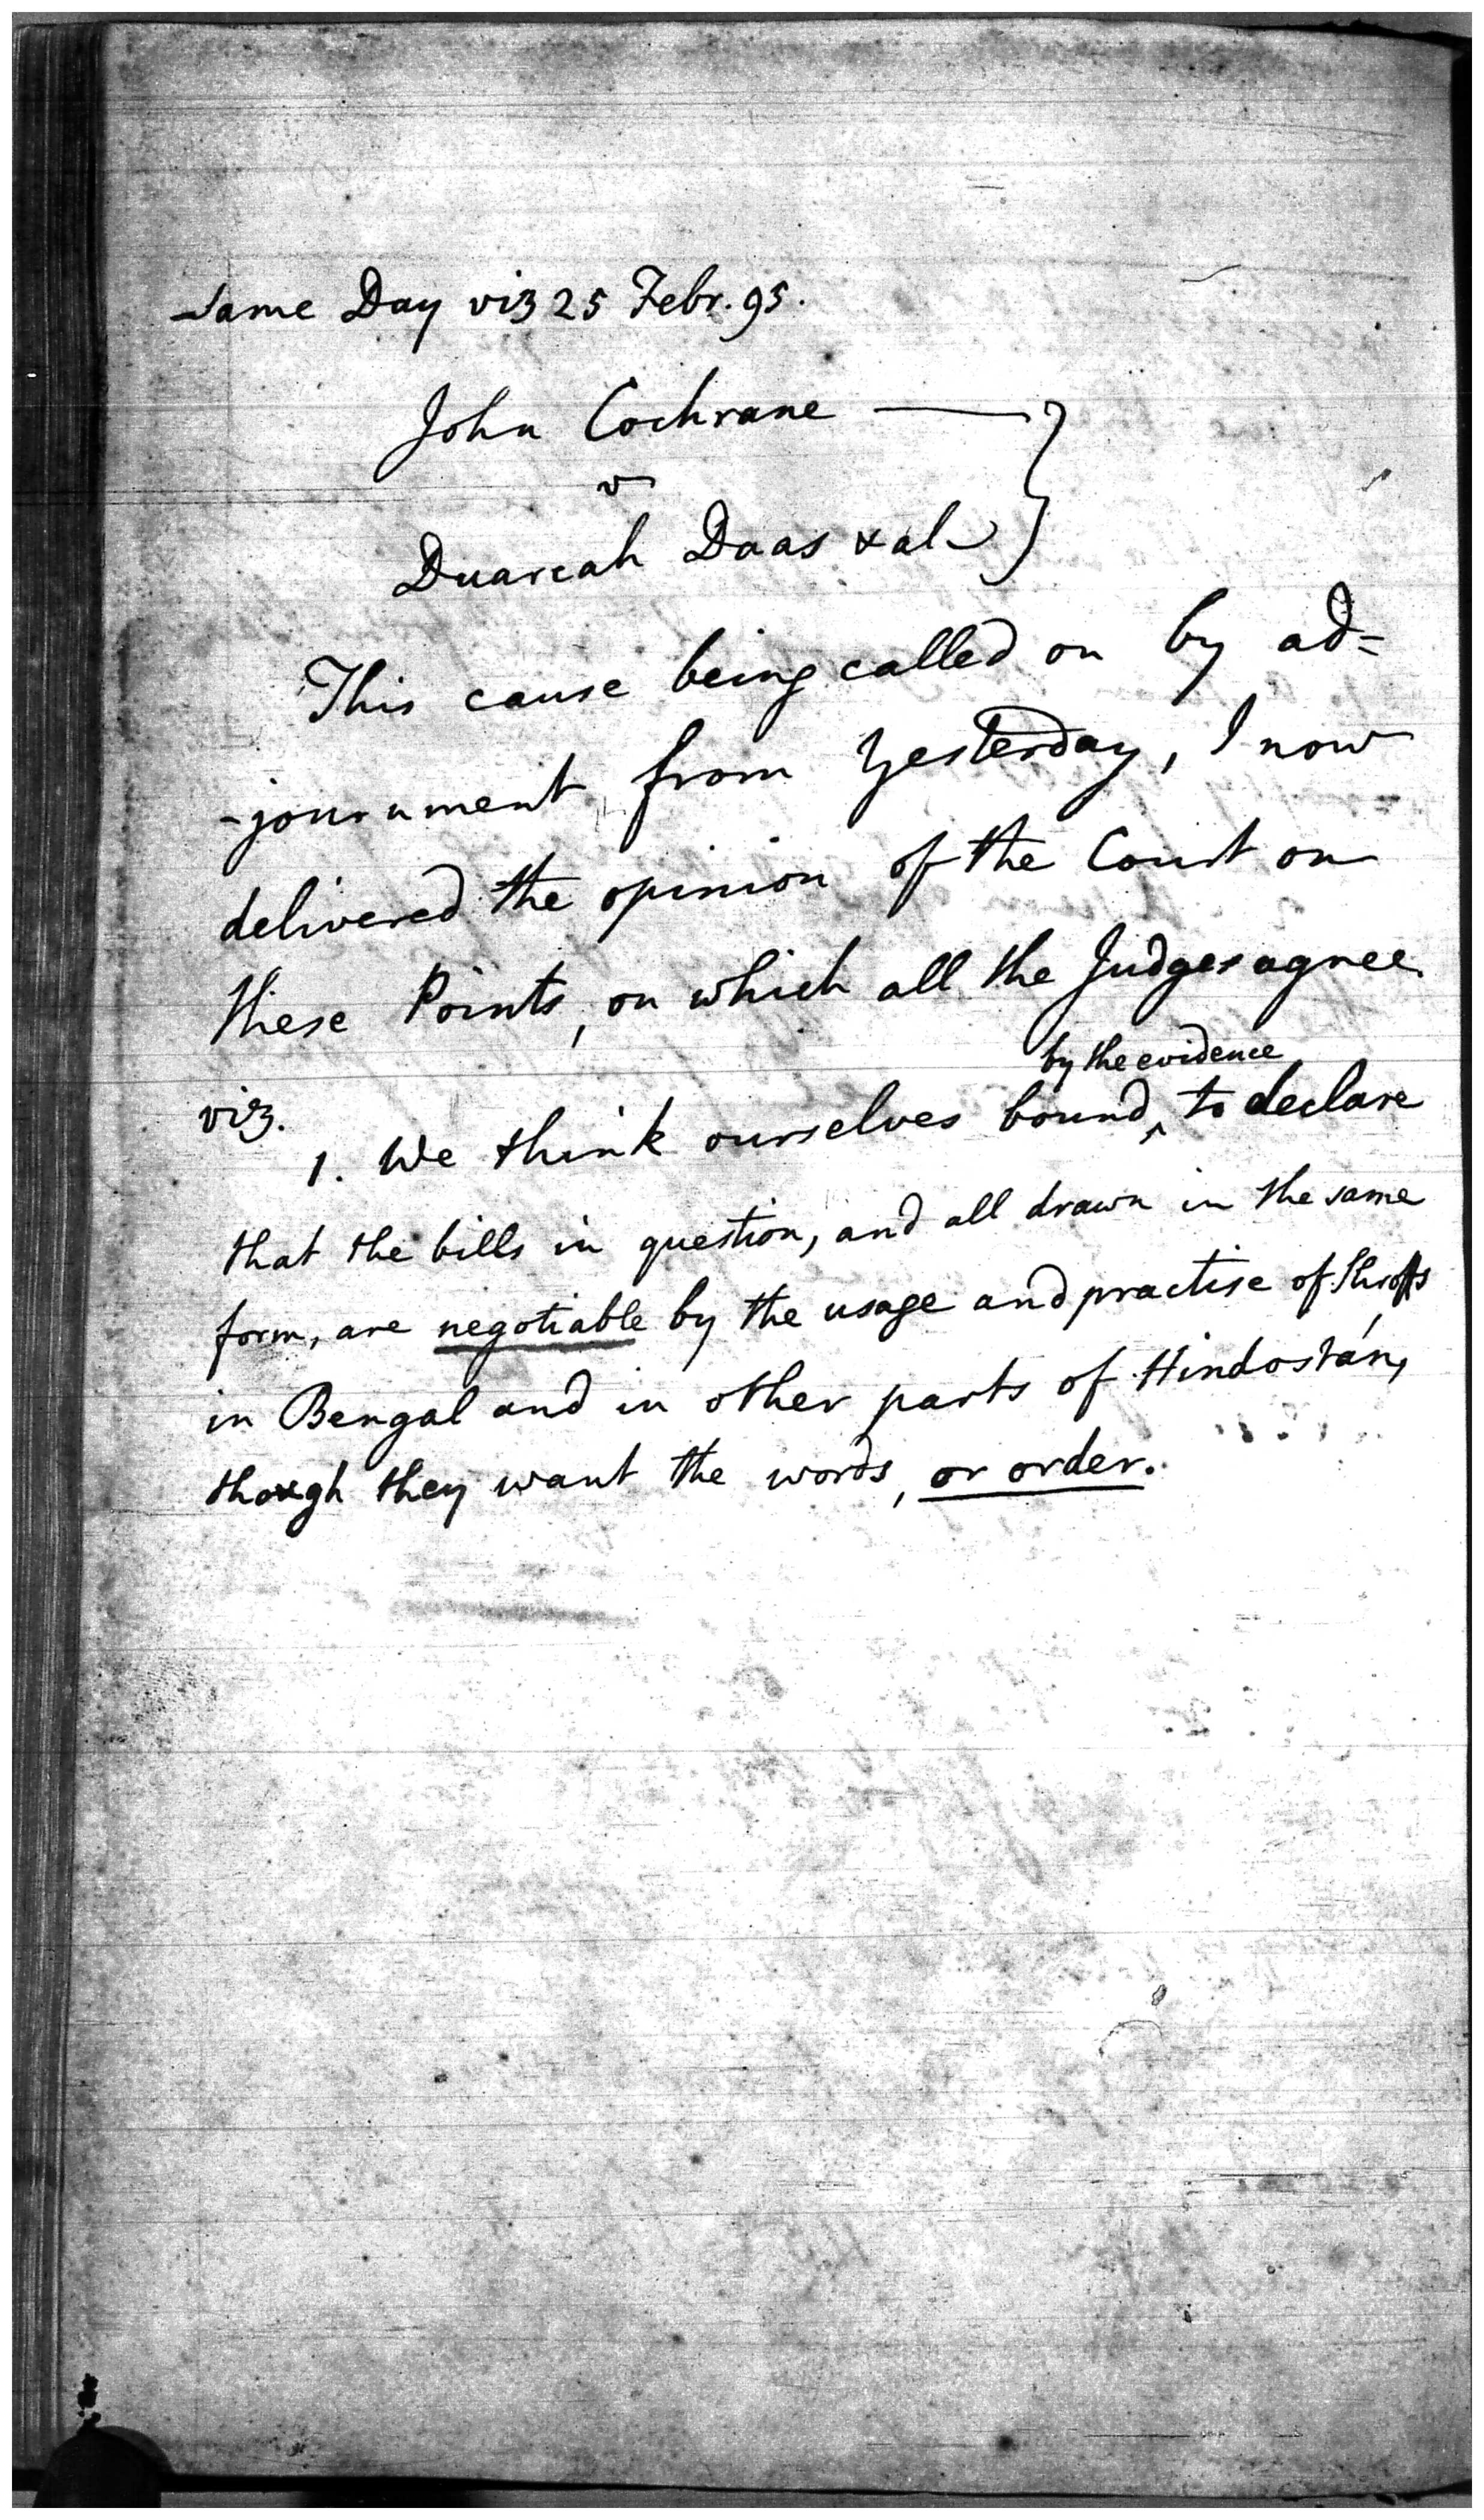 Same Day viz 25 Febr. 95.
John Cochrane
v
Duarcah Daas & al
This cause being called on by ad=
-journment from Yesterday, I now
delivered the opinion of the Court on
these Points, on which all the Judges agree.
by the evidence
viz.
1. We think ourselves bound ‸ to declare
that the bills in question, and all drawn in the same
form, are negotiable by the usage and practise of Shroffs
in Bengal and in other parts of Hindostán,
though they want the words, or order.